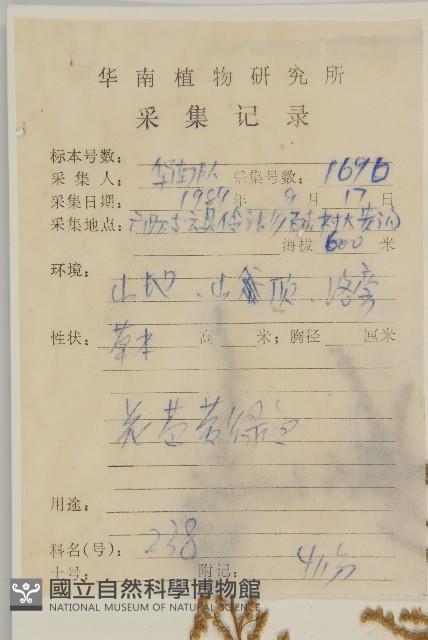 华南植物研究所
采集记录
标本号数:
采集人: 华南队 采集号数: 1696
采集日期: 1989年 9月 17日
采集地点:
海拔 600 米
环境: 山地、山顶、路旁
性状: 草本 高 米; 胸径 厘米
花萼黄绿色
用途:
科名(号): 238
土号: 附记:
國立自然科學博物館
NATIONAL MUSEUM OF NATURAL SCIENCE